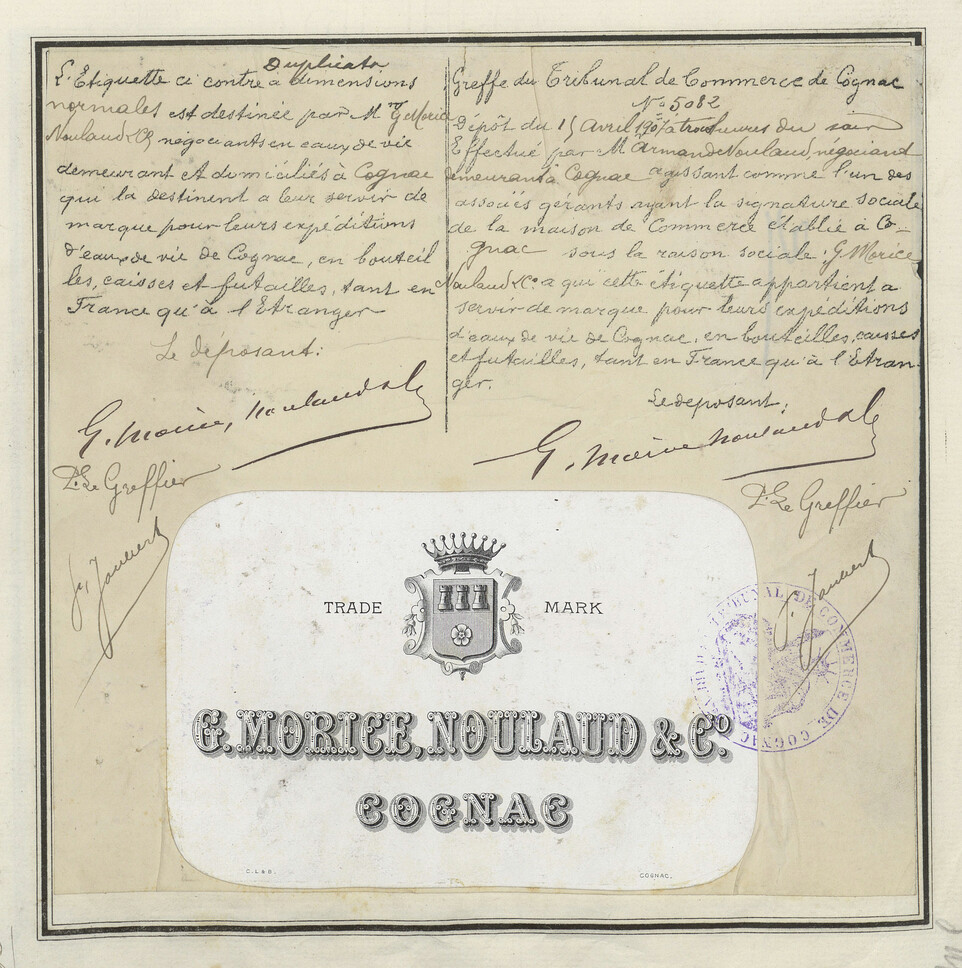 Duplicata
L'Etiquette ci contre à dimensions
normales est destinée par Mrs G Morice
Noulaud & Co négociants en eaux de vie
demeurant et domiciliés à Cognac
qui la destinent a leur servir de
marque pour leurs expéditions
d'eaux de vie de Cognac, en bouteil
les, caisses et futailles, tant en
France qu'à l'Etranger
Le déposant:
G. Morice, Noulaud & Co
Pr Le Greffier
Greffe du Tribunal de Commerce de Cognac
No 5082
Dépôt du 15 Avril 1907 à trois heures du soir
Effectué par M Armand Noulaud, négociand
demeurant à Cognac agissant comme l'un des
associés gérants ayant la signature sociale
de la maison de Commerce établie à Co-
gnac sous la raison sociale: G. Morice
Noulaud & Co. a qui cette étiquette appartient a
servir de marque pour leurs expéditions
d'eaux de vie de Cognac, en bouteilles, caisses
et futailles, tant en France qu'à l'Etran-
ger.
Le deposant:
G. Morice Noulaud & Co
Pr Le Greffier
J. Joubert
TRADE MARK
G. MORICE, NOULAUD & Co.
COGNAC
C.L & B.
COGNAC.
TRIBUNAL DE COMMERCE DE COGNAC